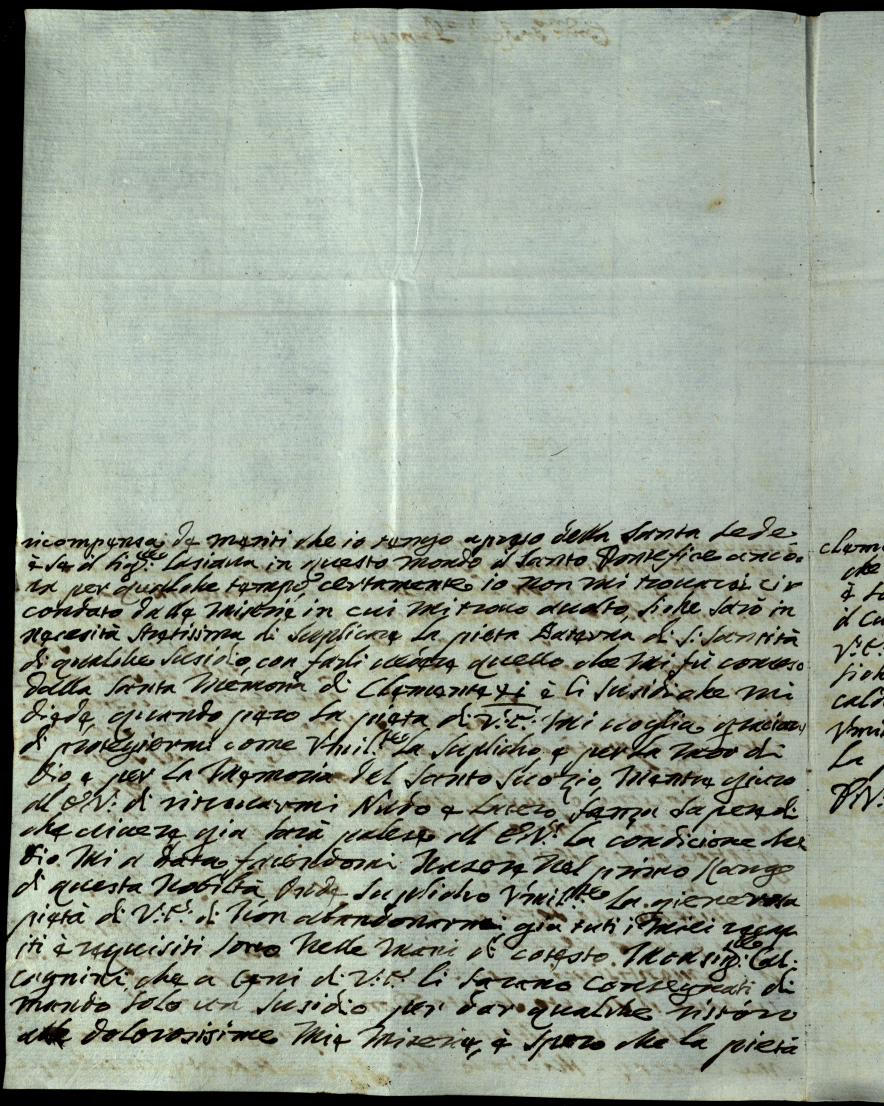 ricompensa de meriti che io tengo apreso della Santa Sede
è se il Sig.re lasiava in questo mondo il Santo Pontefice ancó-
ra per qualche tempo, certamente io non mi trovarei cir
condato dalle miserie in cui mi trovo avolto, si che sarò in
necesità stretisima di suplicare la pieta Paterna di S: Santità
di qualche susidio, con farli avere quello che mi fù conceso
dalla Santa Memoria di Clemente xi è li susidi che mi
diede, quando pero la pieta di V:E: mi voglia
di protegiermi come Vmil.te la suplicho e per la mor di
Dio e per la Memoria del Santo Suo Zio, mentre giuro
al E:V: di ritrovarmi Nudo e Lacero, senza sapere di
che vivere gia sarà palese al E:V: la condicione che
Dio mi a data facendomi Nasere nel primo Rango
di questa Nobiltà Onde suplicho Vmil.te la gienerosa
pietà di V:E: di non abandonarmi gia tuti i miei
iti è requisiti sono nelle mani di cotesto Monsig.re Cal:
cagnini, che a ceni di V:E: li sarano consegnati di
mando solo un susidio per dar qualche ristoro
alle dolorosisime mie miserie, è spero che la pietà
che
V:E:
La